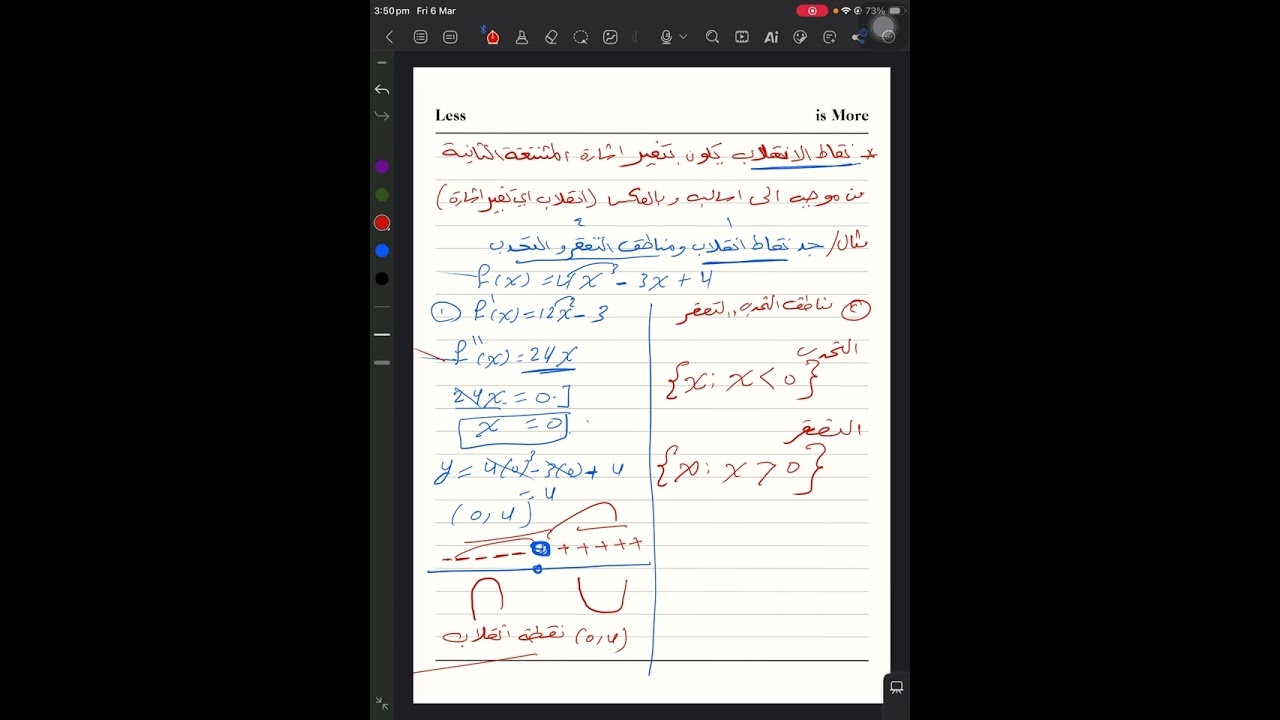 3:50pm Fri 6 Mar
73%
Ai
Less is More
* نقاط الانقلاب يكون بتغير اشارة المشتقة الثانية
من موجب الى سالب وبالعكس (انقلاب اي تغير اشارة)
1 2
مثال/ جد نقاط انقلاب ومناطق التقعر و التحدب
f(x) = 4x³ - 3x + 4
① f'(x) = 12x² - 3
f''(x) = 24x
24x = 0
x = 0
y = 4(0)³ - 3(0) + 4
= 4
(0, 4)
- - - - - + + + + +
(0,4) نقطة انقلاب
② مناطق التحدب والتقعر
التحدب
{x: x < 0}
التقعر
{x: x > 0}